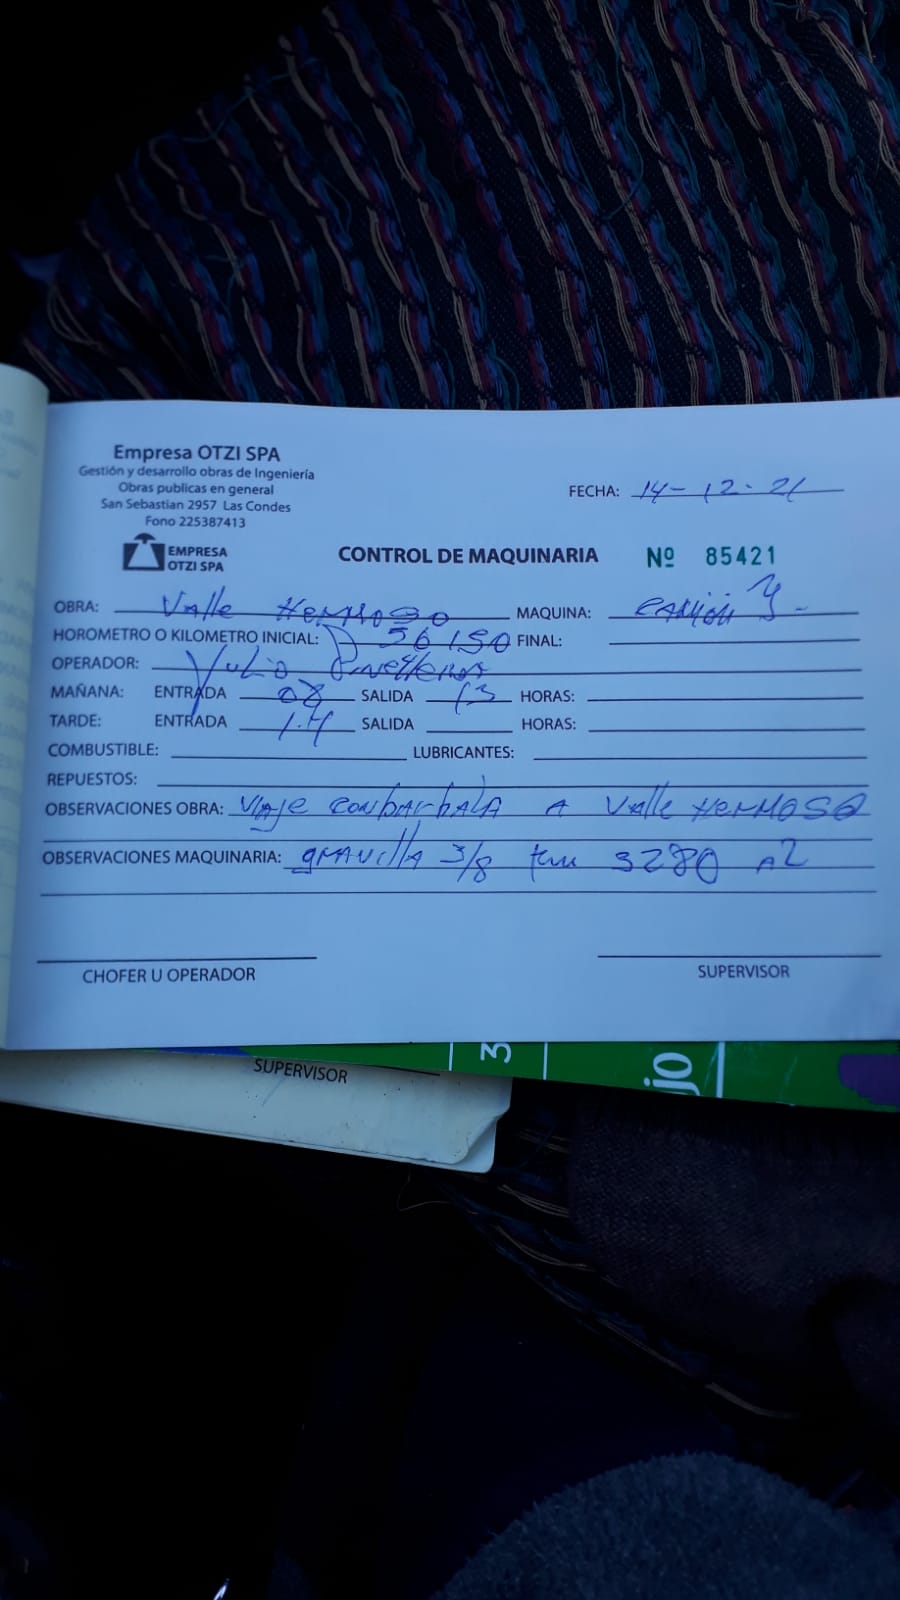 Empresa OTZI SPA
Gestión y desarrollo obras de Ingeniería
Obras publicas en general
San Sebastian 2957 Las Condes
Fono 225387413
EMPRESA
OTZI SPA
FECHA: 14-12-21
CONTROL DE MAQUINARIA Nº 85421
OBRA: Valle Hermoso MAQUINA: camión
HOROMETRO O KILOMETRO INICIAL: 56150 FINAL:
OPERADOR: Yulio
MAÑANA: ENTRADA 08 SALIDA 13 HORAS:
TARDE: ENTRADA 14 SALIDA HORAS:
COMBUSTIBLE: LUBRICANTES:
REPUESTOS:
OBSERVACIONES OBRA: Viaje conbarbala A Valle Hermoso
OBSERVACIONES MAQUINARIA: gravilla 3/8 3280
CHOFER U OPERADOR SUPERVISOR
SUPERVISOR
3
jo